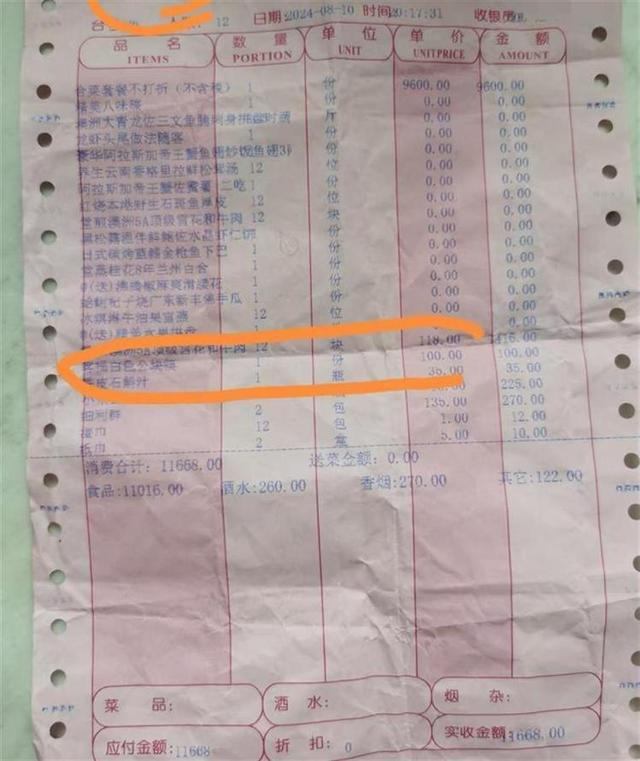 12 日期2024-08-10 时间20:17:31 收银员
品名 数量 单位 单价 金额
ITEMS PORTION UNIT UNITPRICE AMOUNT
合菜套餐不打折(不含税) 1 份 9600.00 9600.00
精美八味碟 1 份 0.00 0.00
澳洲大青龙佐三文鱼 斤 0.00 0.00
龙虾头尾做法随客 1 份 0.00 0.00
豪华阿拉斯加帝王蟹 份 0.00 0.00
养生云南香格里拉鲜松茸汤 12 位 0.00 0.00
阿拉斯加帝王蟹 二吃 1 份 0.00 0.00
红烧本港野生石斑鱼厚皮 12 位 0.00 0.00
堂煎澳洲5A顶级雪花和牛肉 12 块 0.00 0.00
黑松露 水晶虾仁 1 份 0.00 0.00
日式碳烤蓝鳍金枪鱼下巴 1 份 0.00 0.00
宫廷桂花8年兰州百合 1 份 0.00 0.00
(送)沸腾椒麻爽滑腰花 1 份 0.00 0.00
杞子烧广东新丰佛手瓜 1 份 0.00 0.00
冰淇淋牛油果官燕 12 位 0.00 0.00
(送) 1 份 0.00 0.00
顶级雪花和牛肉 12 块 118.00 1416.00
1 份 100.00 100.00
皮石斛汁 1 瓶 35.00 35.00
225.00
细利群 2 包 135.00 270.00
12 包 1.00 12.00
纸巾 2 盒 5.00 10.00
消费合计:11668.00 送菜金额:0.00
食品:11016.00 酒水:260.00 香烟:270.00 其它:122.00
菜品: 酒水: 烟杂:
应付金额:11668 折扣:0 实收金额:11668.00